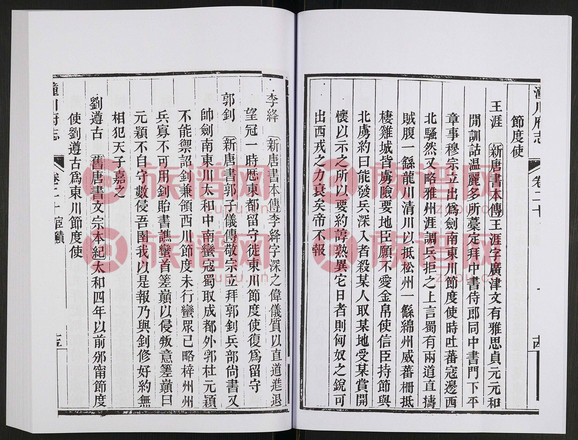 潼川府志 卷二十
節度使
王涯 新唐書本傳王涯字廣津文有雅思貞元元和
間訓誥溫麗多所藁定拜中書侍郎同中書門下平
章事穆宗立出爲劍南東川節度使時吐蕃寇邊西
北騷然又略雅州涯調兵拒之上言蜀有兩道直擣
賊腹一繇龍川清川以抵松州一繇綿州威蕃柵抵
棲雞城皆虜險要地臣願不愛金帛使信臣持節與
北虜約曰能發兵深入者殺某人取某地受某賞開
懷以示之所以要約諄熟異它日者則匈奴之銳可
出西戎之力衰矣帝不報
李絳 新唐書本傳李絳字深之偉儀質以直道進退
望冠一時歷東都留守徙東川節度使復爲留守
郭釗 新唐書郭子儀傳敬宗立拜郭釗兵部尚書又
帥劍南東川太和中南蠻寇蜀取成都外郛杜元穎
不能禦詔釗兼領西川節度未行蠻眾已略梓州州
兵寡不可用釗貽書譙蠻首嵳巔以侵叛意嵳巔曰
元穎不自守數侵吾圉我以是報乃與釗修好約無
相犯天子嘉之
劉遵古 舊唐書文宗本紀太和四年以前邠甯節度
使劉遵古爲東川節度使
潼川府志 卷二十 宦績